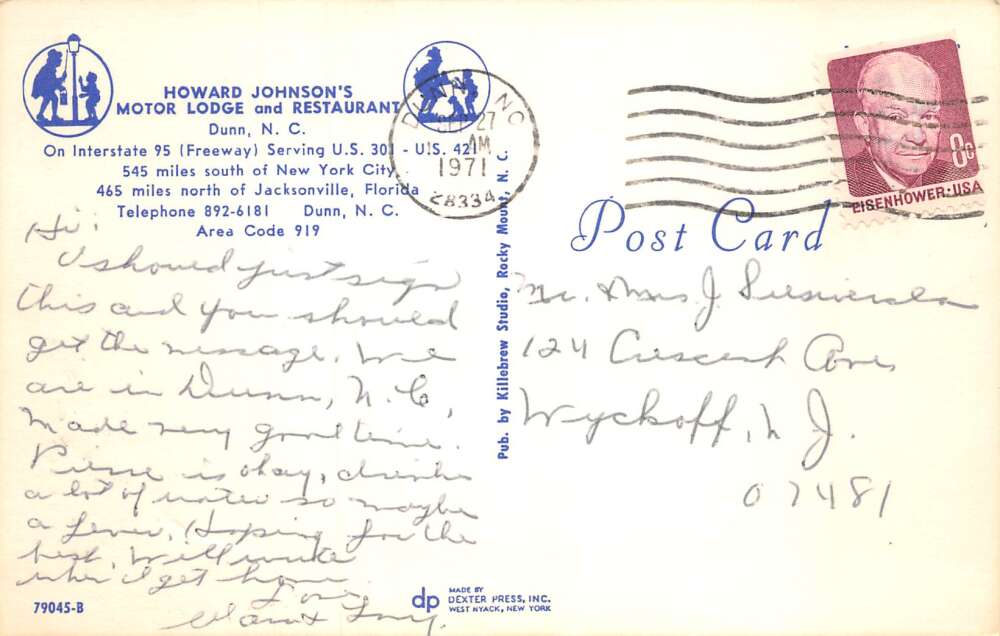 HOWARD JOHNSON'S
MOTOR LODGE and RESTAURANT
Dunn, N. C.
On Interstate 95 (Freeway) Serving U.S. 301 - U.S. 421
545 miles south of New York City
465 miles north of Jacksonville, Florida
Telephone 892-6181 Dunn, N. C.
Area Code 919
DUNN NC
SEP 27
AM
1971
28334
8c
EISENHOWER·USA
Post Card
Hi:
I should just sign
this and you should
get the message. We
are in Dunn, N.C,
Made very good time.
Pierre is okay, drinks
a lot of water so maybe
a fever. Hoping for the
best. Will write
when I get home
Love
Pub. by Killebrew Studio, Rocky Mount, N. C.
Mr. & Mrs J
124 Crescent
Wyckoff, N J.
07481
79045-B
dp
MADE BY
DEXTER PRESS, INC.
WEST NYACK, NEW YORK